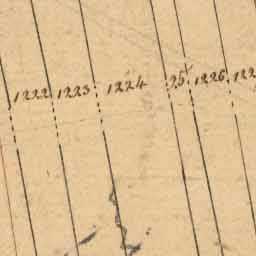 1222 1223 1224 25 1226 122